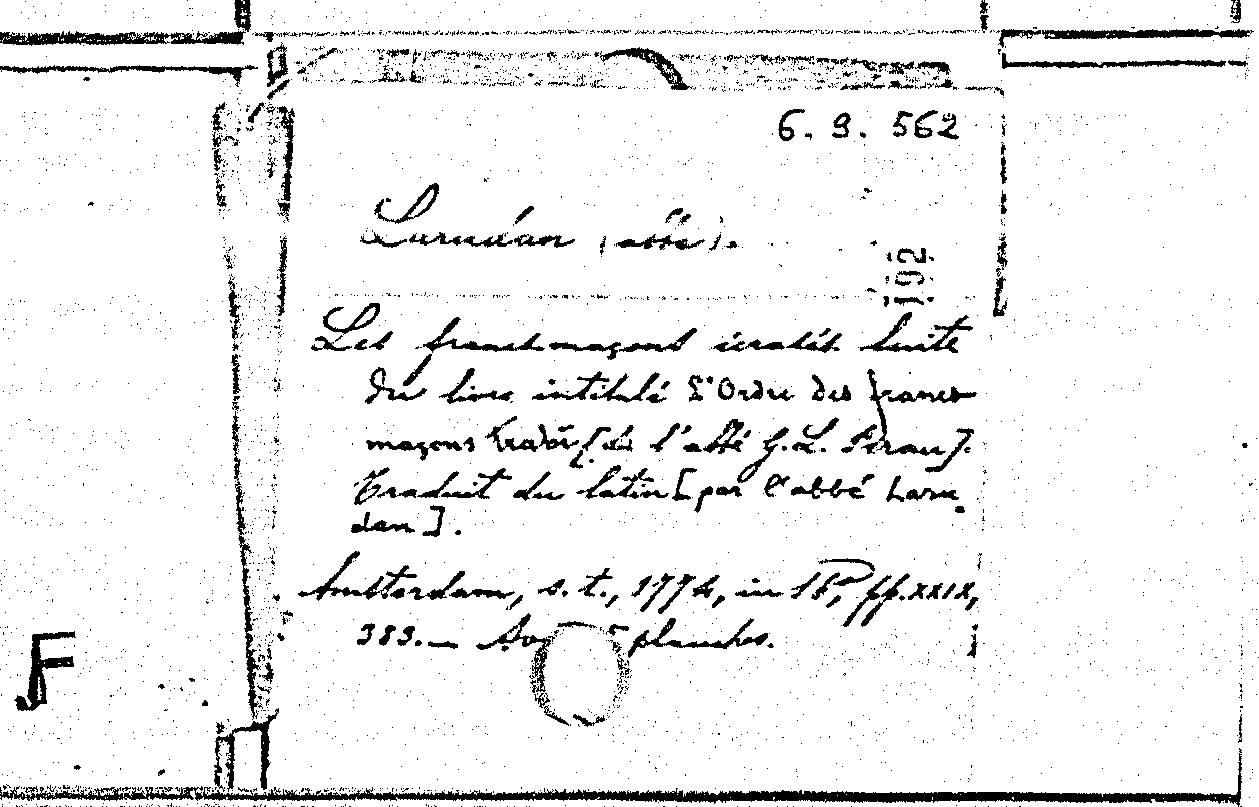 6. 9. 562
Larudan (abbé).
192
Les francs-maçons écrasés. Suite
du livre intitulé L'Ordre des francs
maçons [de l'abbé G. L. Pérau].
Traduit du latin [par l'abbé Laru
dan].
Amsterdam, s. t., 1774, in pp. XXIX,
383. — planches.
F